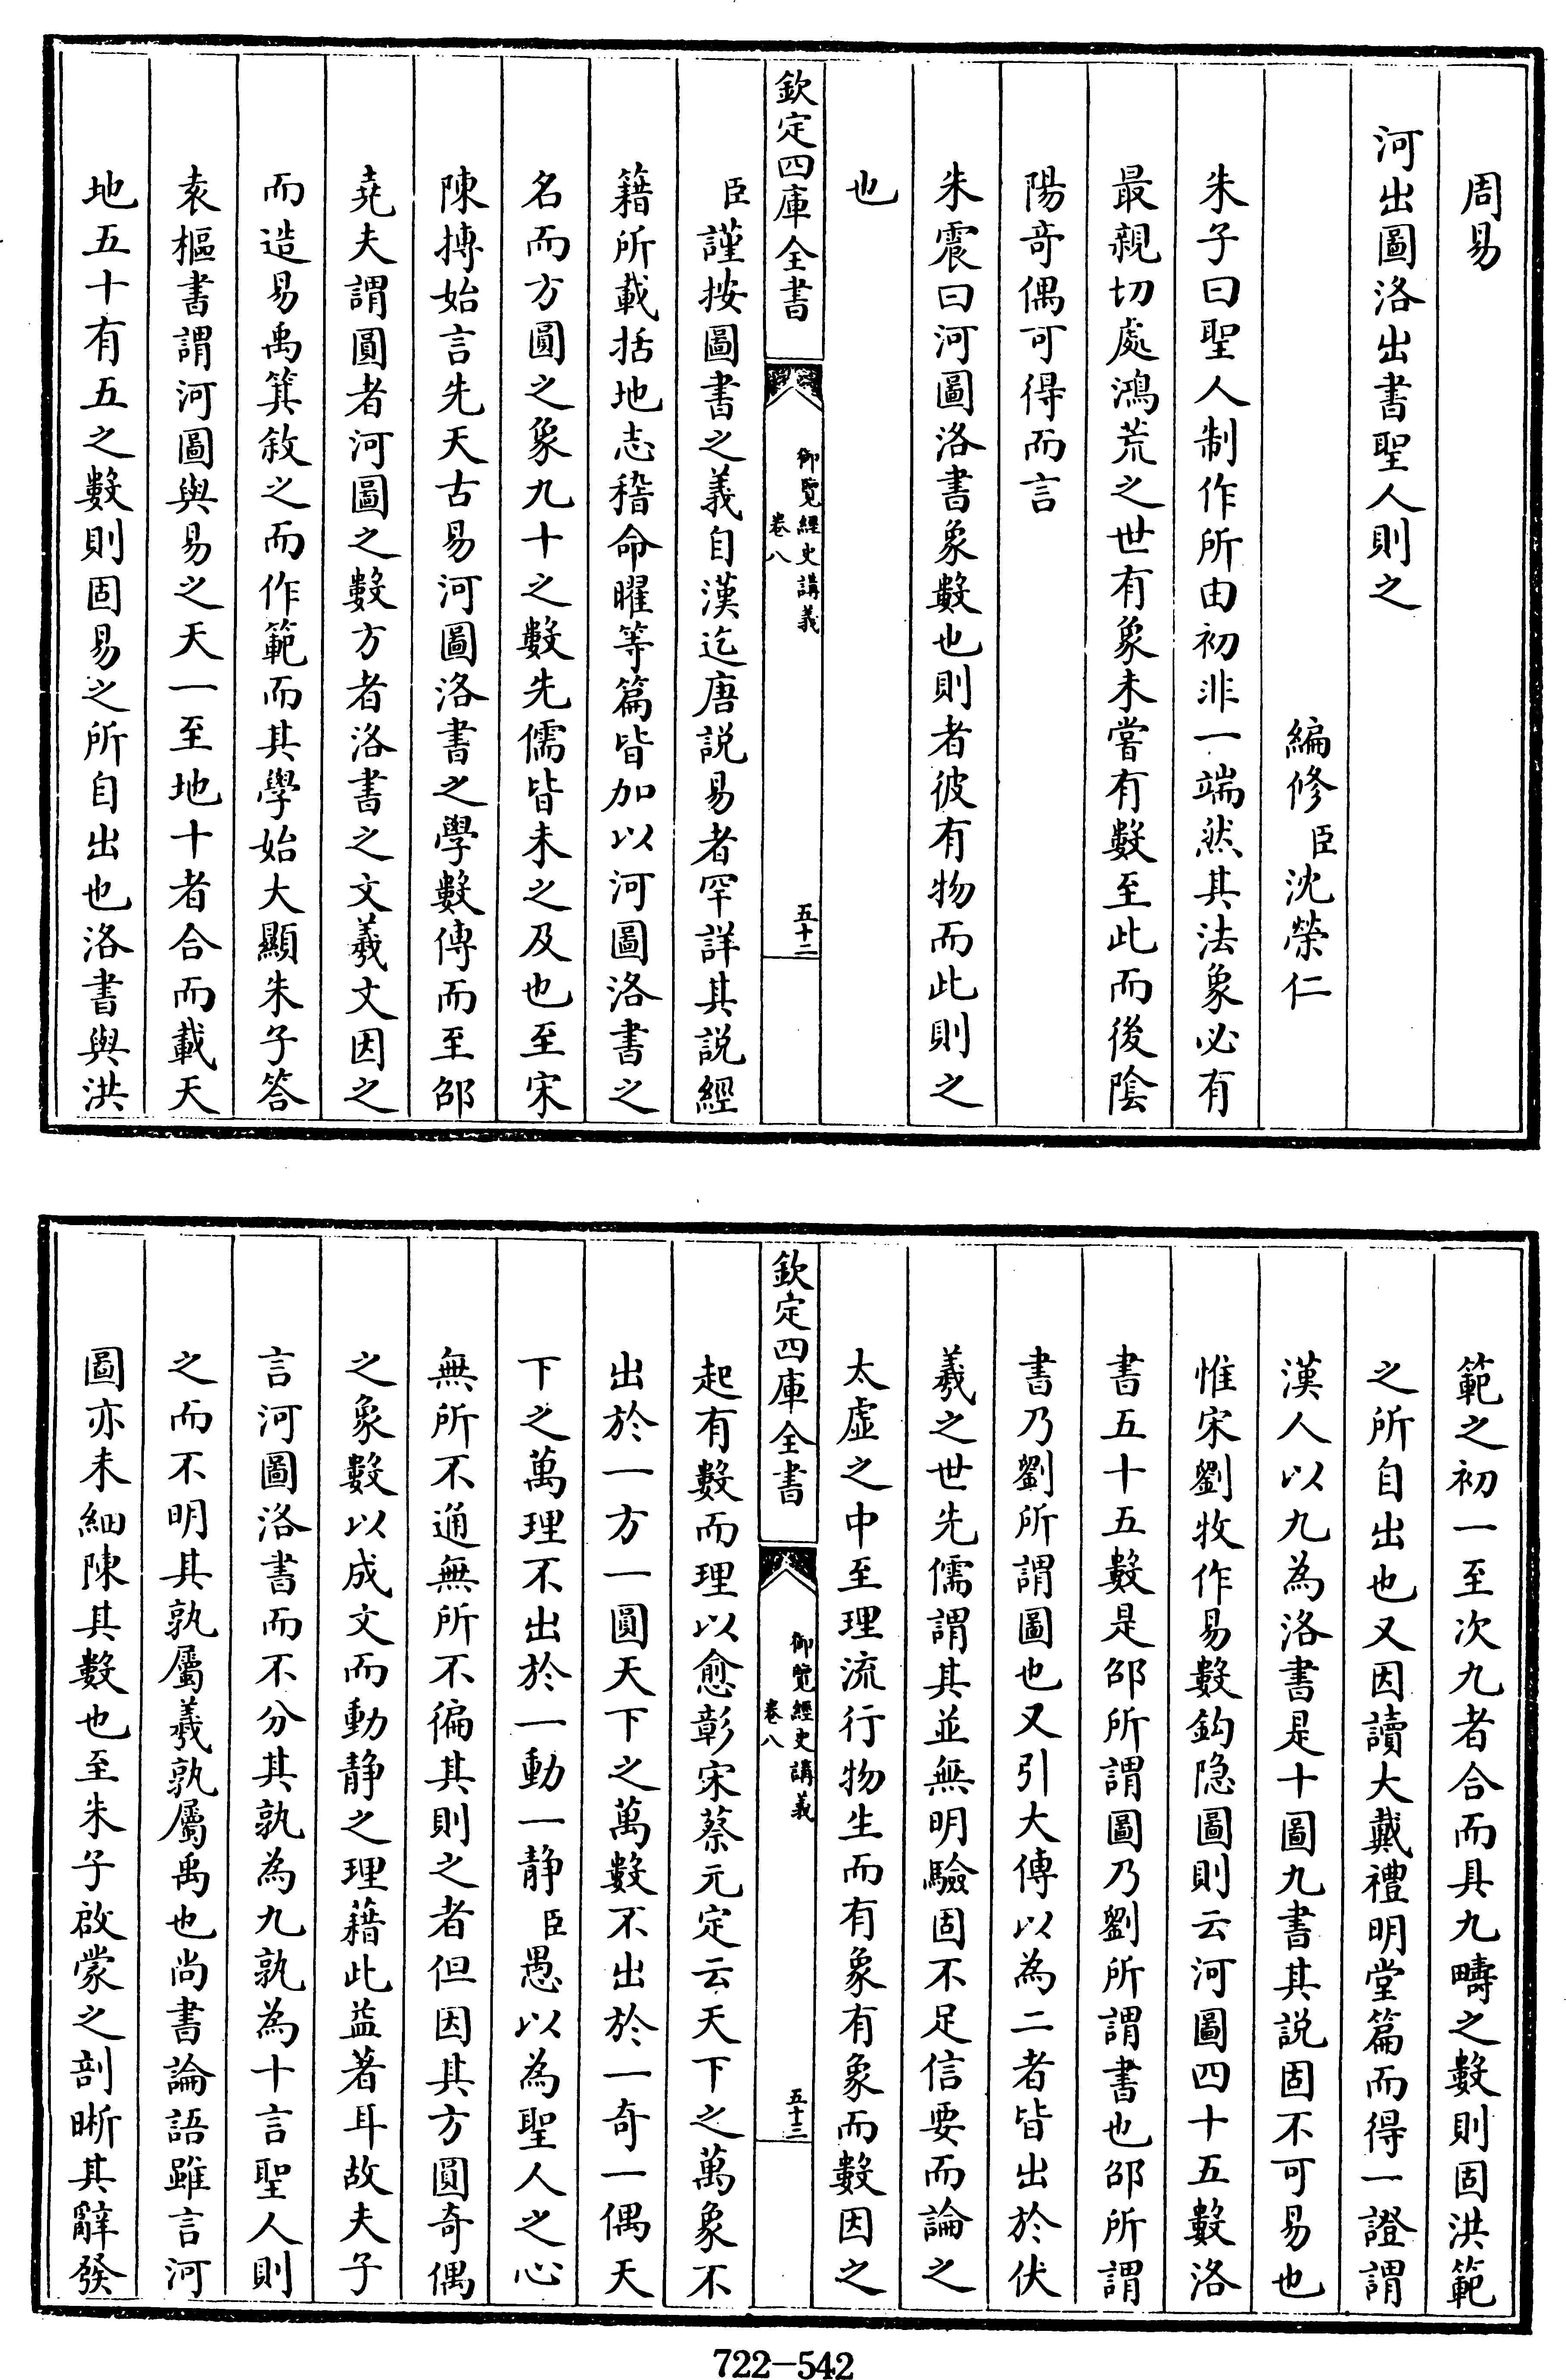 周易
河出圖洛出書聖人則之
編修臣沈榮仁
朱子曰聖人制作所由初非一端然其法象必有
最親切處鴻荒之世有象未嘗有數至此而後陰
陽竒偶可得而言
朱震曰河圖洛書象數也則者彼有物而此則之
也
欽定四庫全書
御覽經史講義
卷八
五十二
臣謹按圖書之義自漢迄唐説易者罕詳其説經
籍所載括地志稽命曜等篇皆加以河圖洛書之
名而方圓之象九十之數先儒皆未之及也至宋
陳摶始言先天古易河圖洛書之學數傳而至邵
堯夫謂圓者河圖之數方者洛書之文羲文因之
而造易禹箕敘之而作範而其學始大顯朱子答
袁樞書謂河圖與易之天一至地十者合而載天
地五十有五之數則固易之所自出也洛書與洪
範之初一至次九者合而具九疇之數則固洪範
之所自出也又因讀大戴禮明堂篇而得一證謂
漢人以九為洛書是十圖九書其説固不可易也
惟宋劉牧作易數鈎隐圖則云河圖四十五數洛
書五十五數是邵所謂圖乃劉所謂書也邵所謂
書乃劉所謂圖也又引大傳以為二者皆出於伏
羲之世先儒謂其並無明驗固不足信要而論之
太虛之中至理流行物生而有象有象而數因之
欽定四庫全書
御覽經史講義
卷八
五十三
起有數而理以愈彰宋蔡元定云天下之萬象不
出於一方一圓天下之萬數不出於一奇一偶天
下之萬理不出於一動一静臣愚以為聖人之心
無所不通無所不徧其則之者但因其方圓奇偶
之象數以成文而動静之理藉此益著耳故夫子
言河圖洛書而不分其孰為九孰為十言聖人則
之而不明其孰屬羲孰屬禹也尚書論語雖言河
圖亦未細陳其數也至朱子啟蒙之剖晰其辭發
722-542